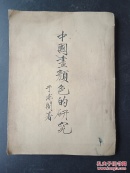 中國畫顏色的研究
于非闇著